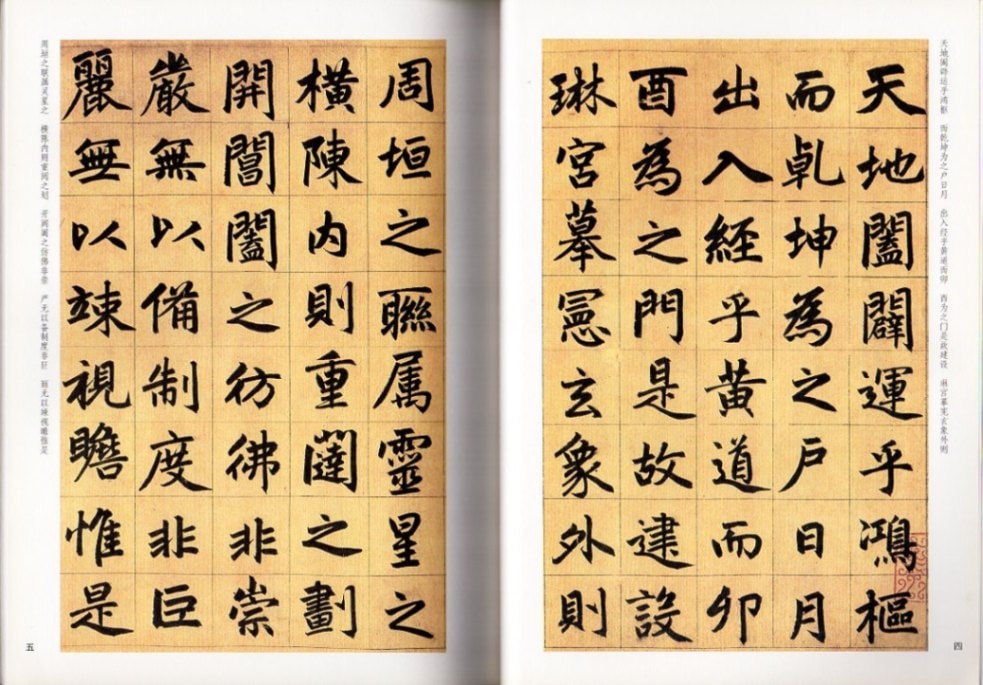 天地阖辟运乎鸿枢 而乾坤为之户日月 出入经乎黄道而卯 酉为之门是故建设 琳宫摹宪玄象外则
天地闔闢運乎鴻樞
而乹坤為之户日月
出入經乎黄道而卯
酉為之門是故建設
琳宮摹憲玄象外則
四
周垣之聯属靈星之
橫陳内則重闥之劃
開閶闔之彷彿非崇
嚴無以備制度非巨
麗無以竦視瞻惟是
周垣之联属灵星之 横陈内则重闼之划 开阊阖之仿佛非崇 严无以备制度非巨 丽无以竦视瞻惟是
五